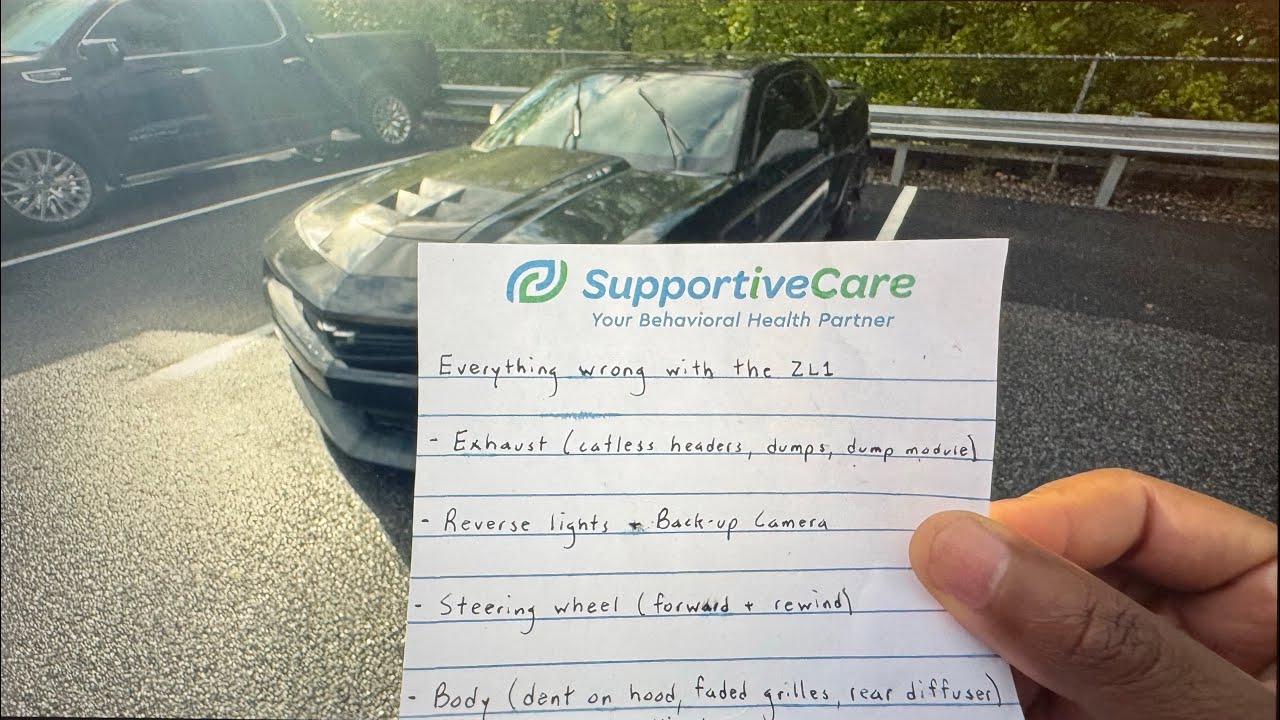 SupportiveCare
Your Behavioral Health Partner
Everything wrong with the ZL1
- Exhaust (catless headers, dumps, dump module)
- Reverse lights + Back-up Camera
- Steering wheel (forward + rewind)
- Body (dent on hood, faded grilles, rear diffuser)